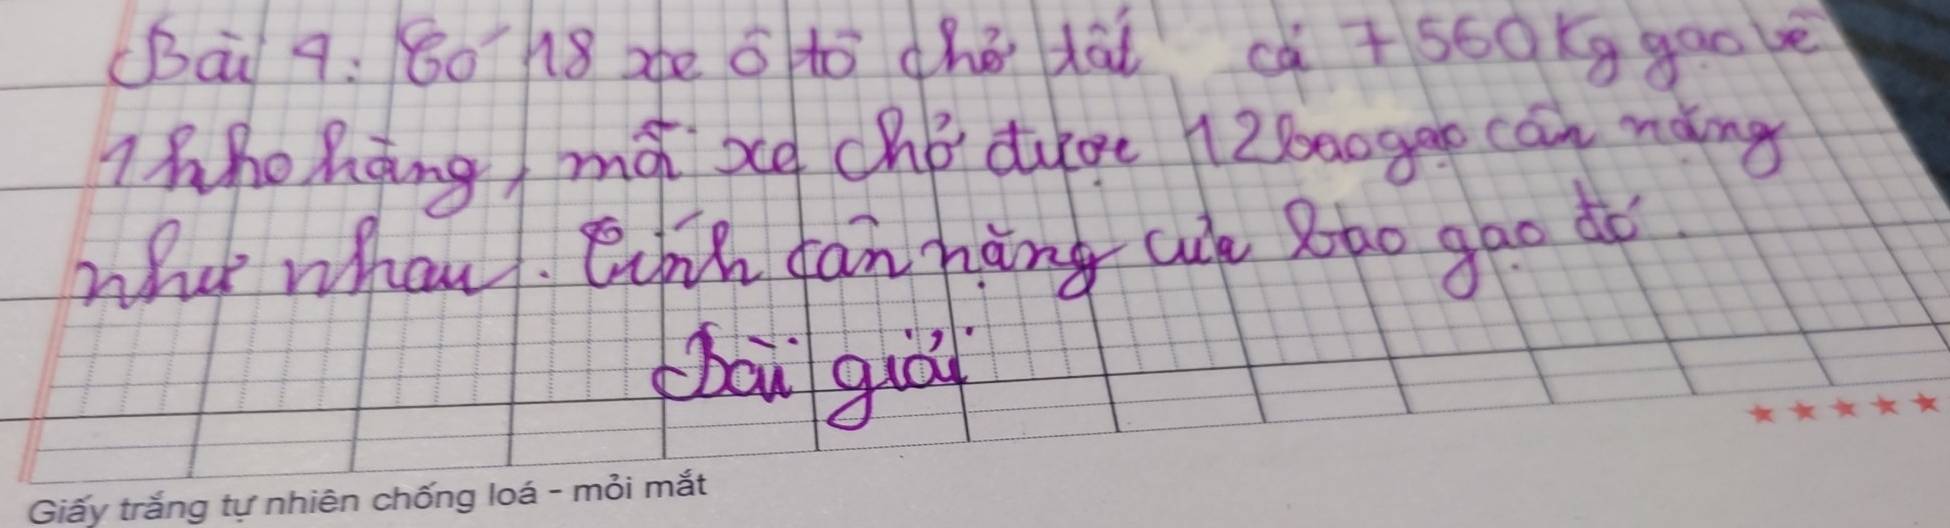 Bài 4: Có 18 xe ô tô chở tất cả 7560kg gạo về
1 kho hàng, mỗi xe chở được 12 bao gạo cân nặng
như nhau. Tính cân nặng của bao gạo đó.
Bài giải
Giấy trắng tự nhiên chống loá - mỏi mắt